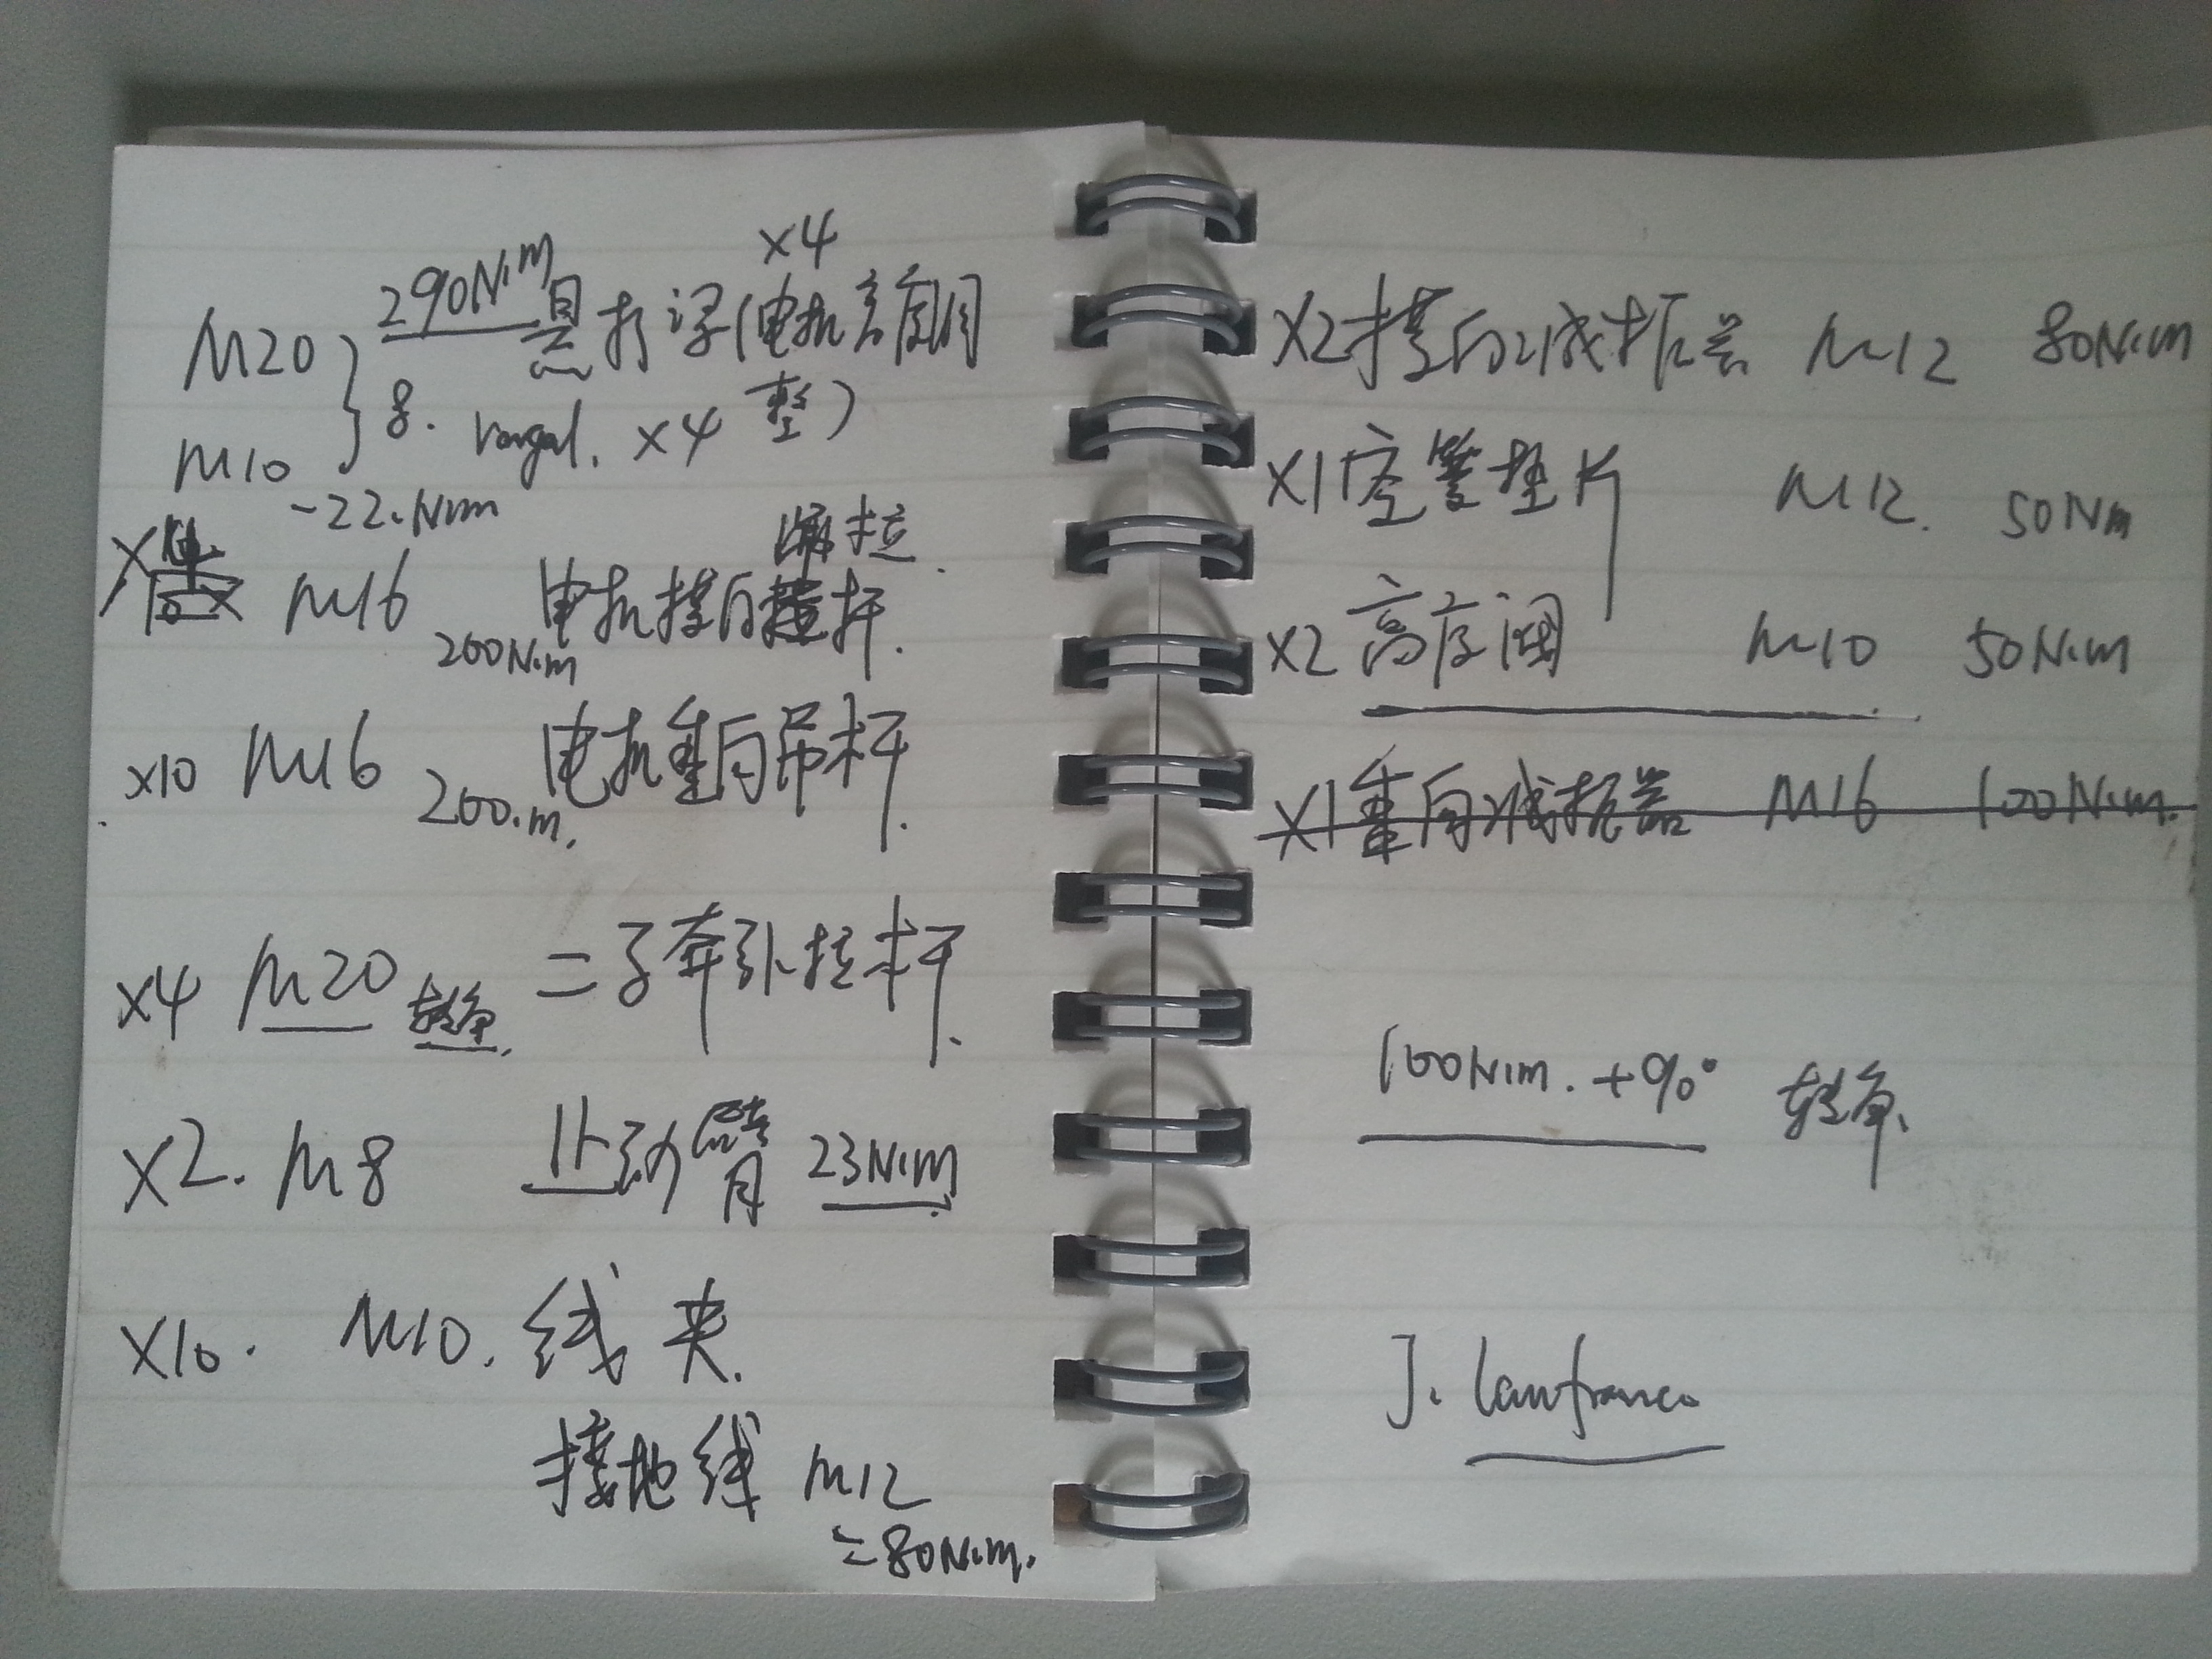 x4
M20 290N·m 悬挂梁(电机高度调
M10 8. x4 整)
-22.N·m
M16 200N·m 电机横向拉杆.
x10 M16 200.m. 电机垂向吊杆.
x4 M20 转角. 二子牵引拉杆.
x2. M8 止动臂 23N·m
x10. M10. 线夹.
接地线 M12
=80N·m.
x2 横向减振器 M12 80N·m
x1 空簧垫片 M12. 50Nm
x2 高度阀 M10 50N·m
x1 垂向减振器 M16 100N·m.
100N·m. +90° 转角.
J. Lanfranco